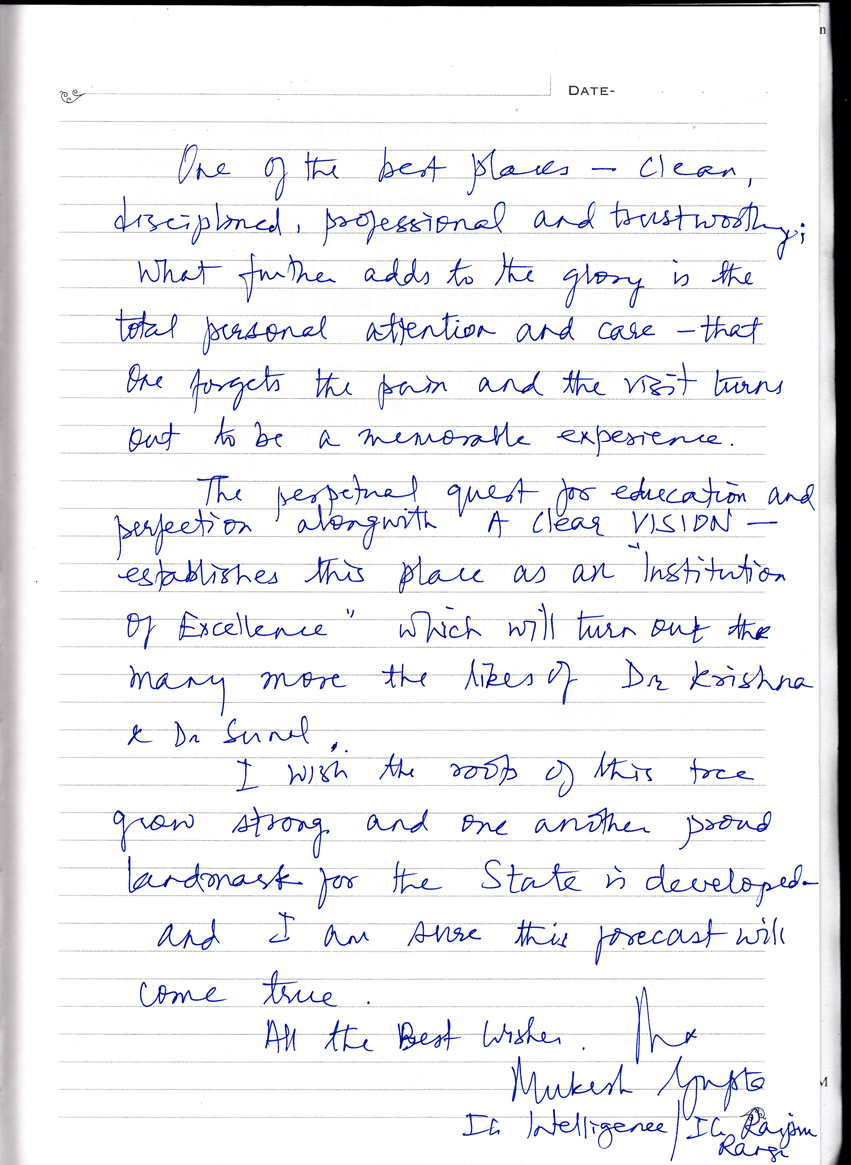 DATE-
One of the best places — clean,
disciplined, professional and trustworthy;
What further adds to the glory is the
total personal attention and care – that
one forgets the pain and the visit turns
out to be a memorable experience.
The perpetual quest for education and
perfection alongwith A clear VISION —
establishes this place as an "Institution
Of Excellence" which will turn out the
many more the likes of Dr Krishna
& Dr Sunil.
I wish the roots of this tree
grow strong and one another proud
landmark for the State is developed-
and I am sure this forecast will
come true.
All the Best Wishes.
Mukesh Gupta
IG Intelligence/IG
Range